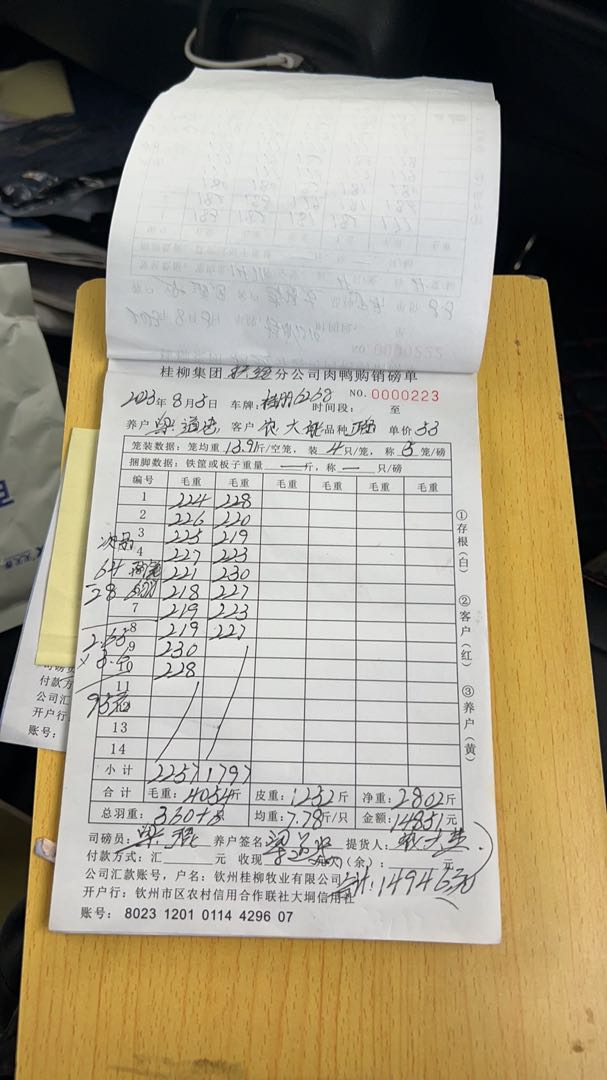 NO.0000222
桂柳集团 分公司肉鸭购销磅单
NO.0000223
2023年8月5日 车牌: 6268 时间段: 至
养户 梁道 客户 农大 品种 正品 单价 53
笼装数据: 笼均重 13.9斤/空笼, 装 4只/笼, 称 5笼/磅
捆脚数据: 铁筐或板子重量 — 斤, 称 — 只/磅
编号 毛重 毛重 毛重 毛重 毛重 毛重
1 224 228
2 226 220
3 225 219
4 227 223
221 230
218 227
7 219 223
8 219 227
9 230
10 228
11
13
14
次品
64
28
小计 2257 1797
合计 毛重: 4054斤 皮重: 1252斤 净重: 2802斤
总羽重: 360 均重: 7.78斤/只 金额: 14851元
司磅员: 梁 养户签名: 梁道 提货人:
付款方式: 汇 元 收现 (余): 元
公司汇款账号, 户名: 钦州桂柳牧业有限公司
合计: 14946.30
开户行: 钦州市区农村信用合作联社大垌信用社
账号: 8023 1201 0114 4296 07
①存根(白) ②客户(红) ③养户(黄)
司磅员
付款方
公司汇
开户行
账号: